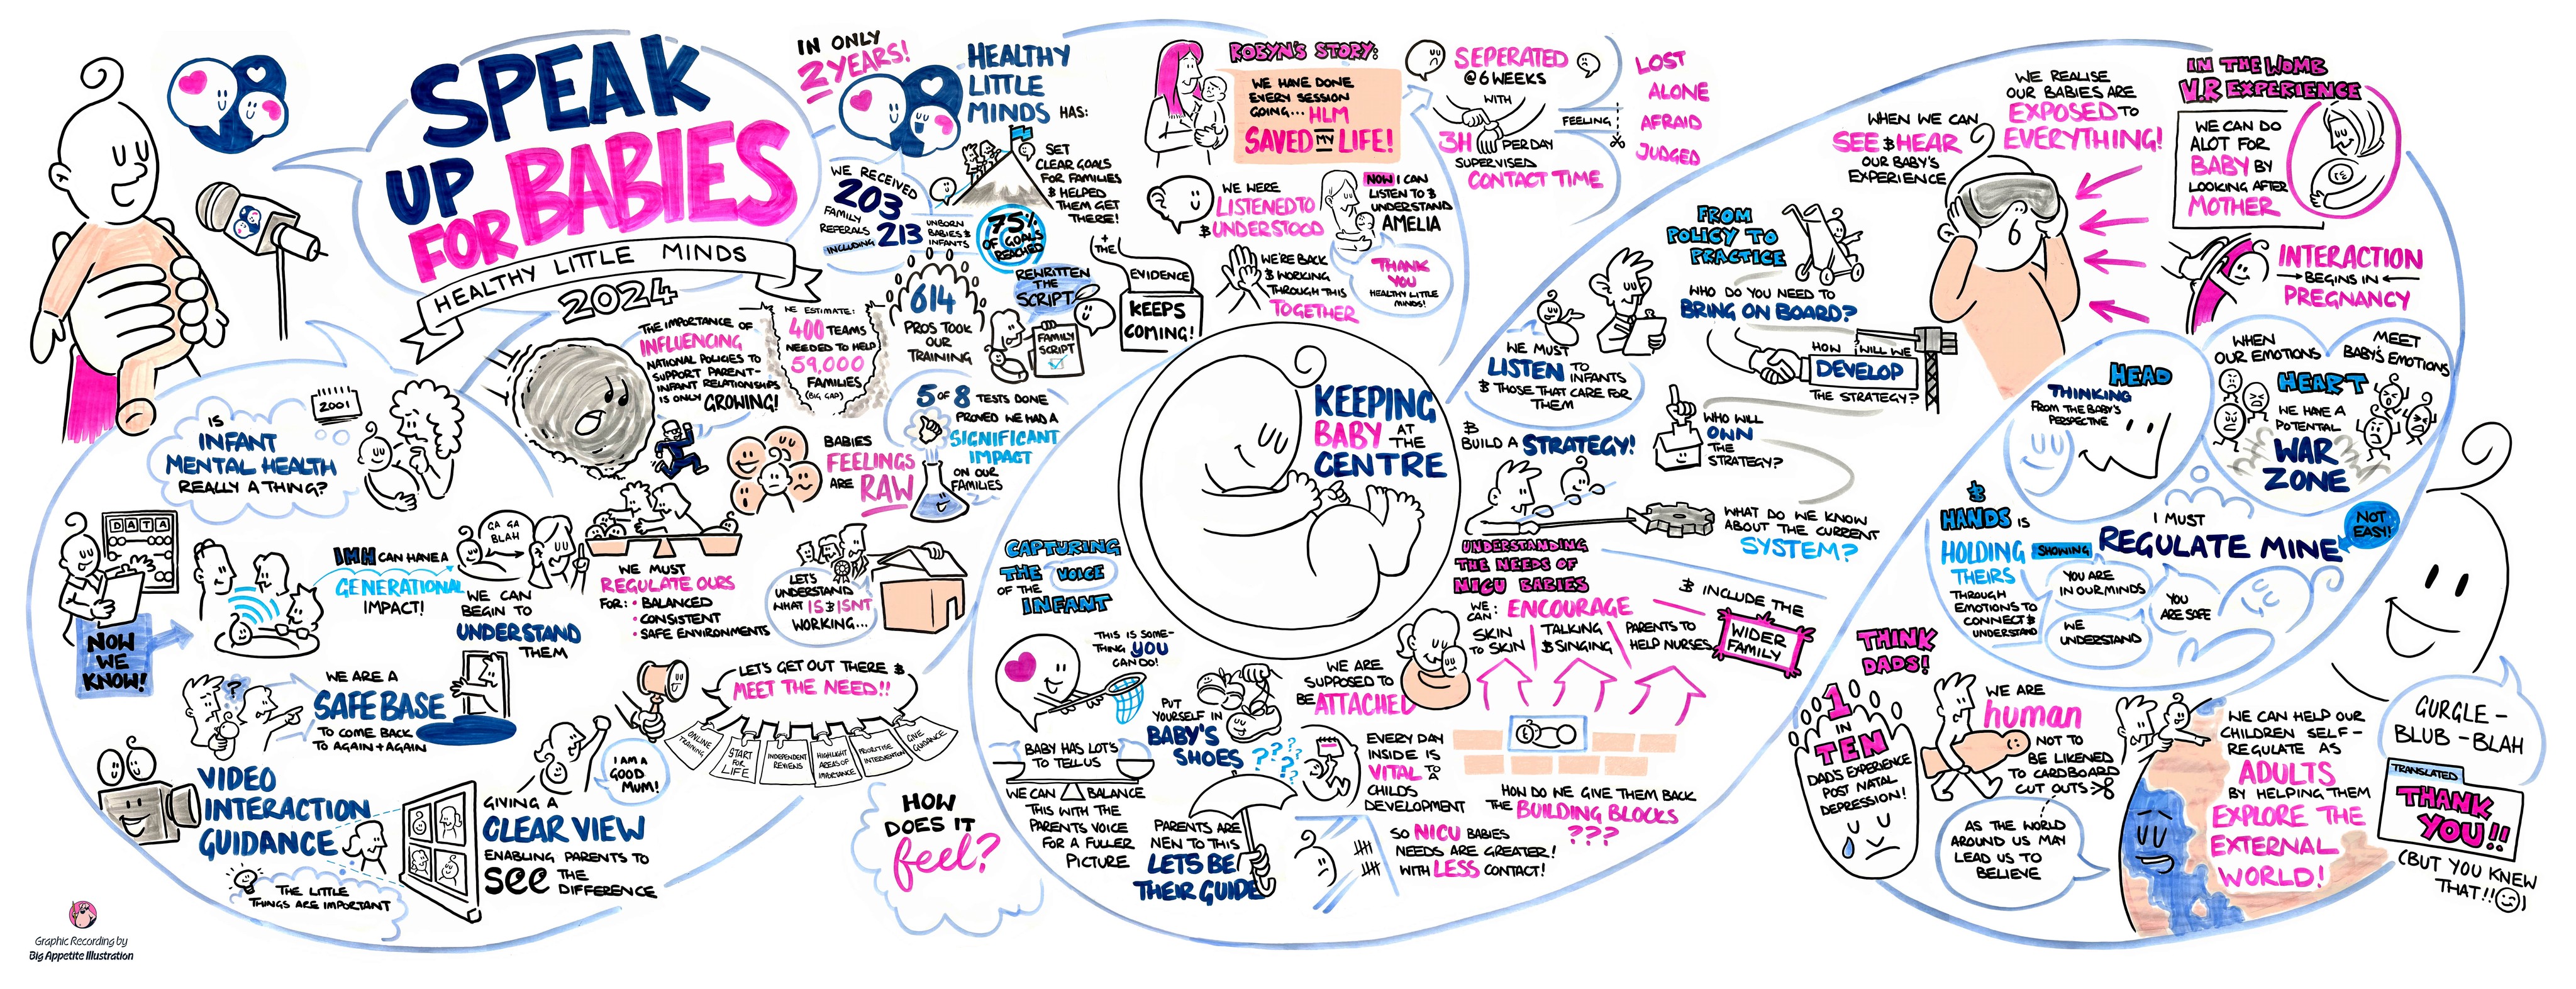 SPEAK
UP
FOR BABIES
HEALTHY LITTLE MINDS
2024
IS
INFANT
MENTAL HEALTH
REALLY A THING?
2001
DATA
NOW
WE
KNOW!
IMH CAN HAVE A
GENERATIONAL
IMPACT!
GA GA
BLAH
WE CAN
BEGIN TO
UNDERSTAND
THEM
WE ARE A
SAFE BASE
TO COME BACK
TO AGAIN + AGAIN
?
VIDEO
INTERACTION
GUIDANCE
THE LITTLE
THINGS ARE IMPORTANT
GIVING A
CLEAR VIEW
ENABLING PARENTS TO
SEE THE
DIFFERENCE
I AM A
GOOD
MUM!
THE IMPORTANCE OF
INFLUENCING
NATIONAL POLICIES TO
SUPPORT PARENT-
INFANT RELATIONSHIPS
IS ONLY GROWING!
WE ESTIMATE:
400 TEAMS
NEEDED TO HELP
59,000
FAMILIES
(BIG GAP)
BABIES
FEELINGS
ARE RAW
WE MUST
REGULATE OURS
FOR: • BALANCED
• CONSISTENT
• SAFE ENVIRONMENTS
LET'S
UNDERSTAND
WHAT IS & ISNT
WORKING...
LET'S GET OUT THERE &
MEET THE NEED!!
ONLINE
TRAINING
START
FOR
LIFE
INDEPENDENT
REVIEWS
HIGHLIGHT
AREAS OF
IMPORTANCE
PRIORITISE
INTERVENTION
GIVE
GUIDANCE
HOW
DOES IT
feel?
IN ONLY
2 YEARS!
HEALTHY
LITTLE
MINDS HAS:
WE RECEIVED
203
FAMILY
REFERALS
INCLUDING 213 UNBORN
BABIES &
INFANTS
SET
CLEAR GOALS
FOR FAMILIES
& HELPED
THEM GET
THERE!
75%
OF GOALS
REACHED
614
PROS TOOK
OUR
TRAINING
REWRITTEN
THE
SCRIPT
FAMILY
SCRIPT
+
THE
EVIDENCE
KEEPS
COMING!
5 OF 8 TESTS DONE
PROVED WE HAD A
SIGNIFICANT
IMPACT
ON OUR
FAMILIES
ROBYN'S STORY:
WE HAVE DONE
EVERY SESSION
GOING... HLM
SAVED MY LIFE!
WE WERE
LISTENED TO
& UNDERSTOOD
NOW I CAN
LISTEN TO &
UNDERSTAND
AMELIA
WE'RE BACK
& WORKING
THROUGH THIS
TOGETHER
THANK
YOU
HEALTHY LITTLE
MINDS!
SEPERATED
@ 6 WEEKS
WITH
3H PER DAY
SUPERVISED
CONTACT TIME
FEELING
LOST
ALONE
AFRAID
JUDGED
KEEPING
BABY AT
THE
CENTRE
CAPTURING
THE VOICE
OF THE
INFANT
THIS IS SOME-
THING YOU
CAN DO!
BABY HAS LOT'S
TO TELL US
WE CAN BALANCE
THIS WITH THE
PARENTS VOICE
FOR A FULLER
PICTURE
PUT
YOURSELF IN
BABY'S
SHOES
????
PARENTS ARE
NEW TO THIS
LETS BE
THEIR GUIDE
WE ARE
SUPPOSED TO
BE ATTACHED
EVERY DAY
INSIDE IS
VITAL TO A
CHILDS
DEVELOPMENT
SO NICU BABIES
NEEDS ARE GREATER!
WITH LESS CONTACT!
UNDERSTANDING
THE NEEDS OF
NICU BABIES
WE
CAN: ENCOURAGE
SKIN
TO SKIN
TALKING
& SINGING
PARENTS TO
HELP NURSES
& INCLUDE THE
WIDER
FAMILY
HOW DO WE GIVE THEM BACK
THE BUILDING BLOCKS
???
FROM
POLICY TO
PRACTICE
WE MUST
LISTEN TO
INFANTS
& THOSE THAT CARE FOR
THEM
& BUILD A STRATEGY!
WHO DO YOU NEED TO
BRING ON BOARD?
HOW WILL WE
DEVELOP
THE STRATEGY?
WHO WILL
OWN
THE
STRATEGY?
WHAT DO WE KNOW
ABOUT THE CURRENT
SYSTEM?
WHEN WE CAN
SEE & HEAR
OUR BABY'S
EXPERIENCE
WE REALISE
OUR BABIES ARE
EXPOSED TO
EVERYTHING!
IN THE WOMB
V.R EXPERIENCE
WE CAN DO
ALOT FOR
BABY BY
LOOKING AFTER
MOTHER
INTERACTION
BEGINS IN
PREGNANCY
HEAD
THINKING
FROM THE BABY'S
PERSPECTIVE
WHEN
OUR EMOTIONS
MEET
BABY'S EMOTIONS
HEART
WE HAVE A
POTENTIAL
WAR
ZONE
&
HANDS IS
HOLDING
THEIRS
THROUGH
EMOTIONS TO
CONNECT &
UNDERSTAND
SHOWING
YOU ARE
IN OUR MINDS
WE
UNDERSTAND
YOU
ARE SAFE
I MUST
REGULATE MINE
NOT
EASY!
THINK
DADS!
1
IN
TEN
DADS EXPERIENCE
POST NATAL
DEPRESSION!
WE ARE
human
NOT TO
BE LIKENED
TO CARDBOARD
CUT OUTS
AS THE WORLD
AROUND US MAY
LEAD US TO
BELIEVE
WE CAN HELP OUR
CHILDREN SELF-
REGULATE AS
ADULTS
BY HELPING THEM
EXPLORE THE
EXTERNAL
WORLD!
GURGLE -
BLUB - BLAH
TRANSLATED
THANK
YOU!!
(BUT YOU KNEW
THAT!! )
Graphic Recording by
Big Appetite Illustration